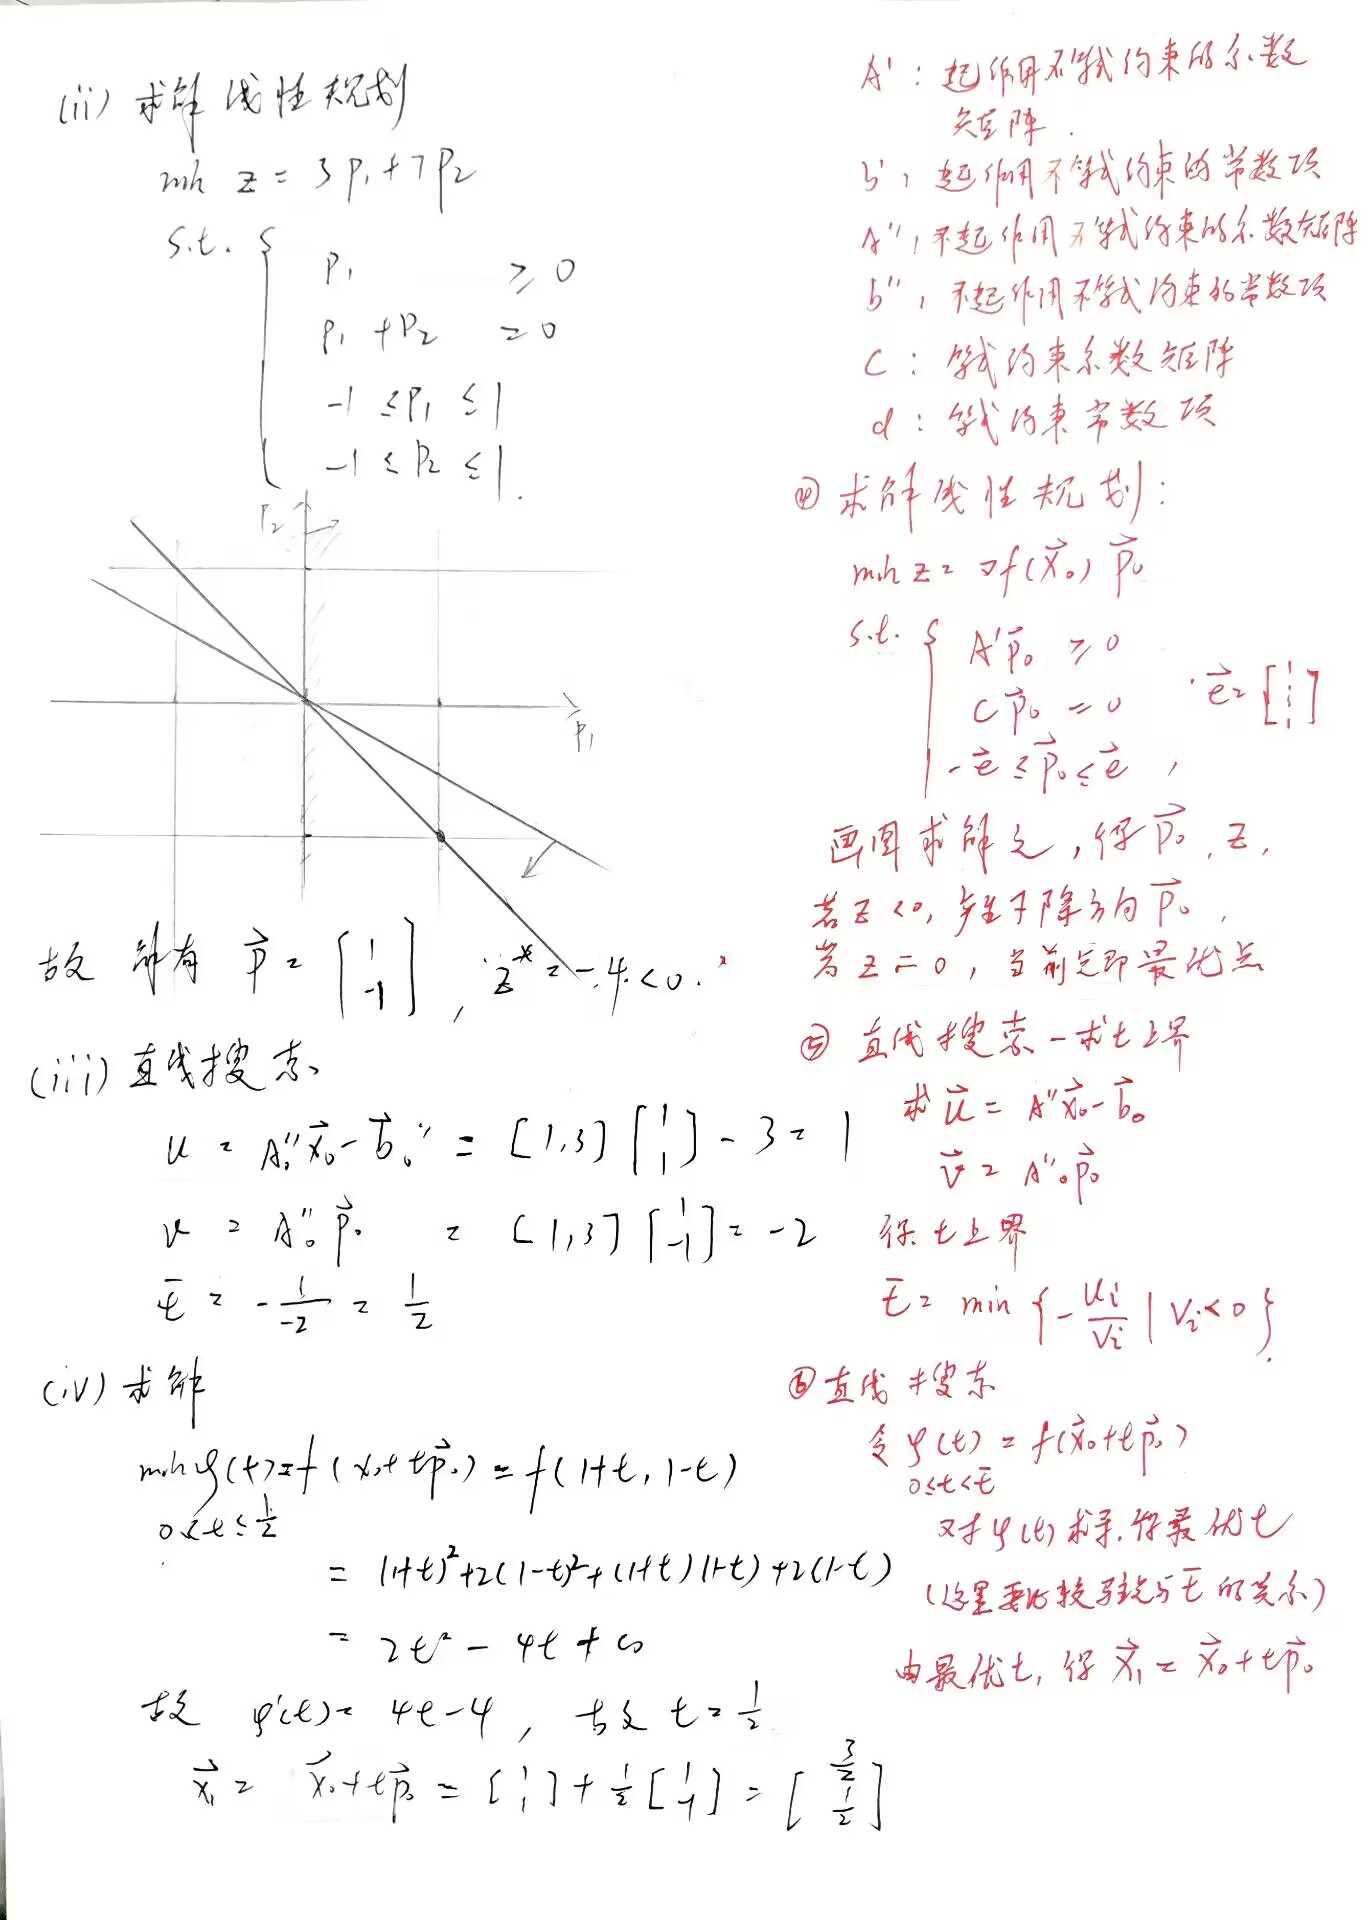 (ii) 求解线性规划
min z = 3p₁+7p₂
s.t. {
p₁ ≥ 0
p₁ +p₂ = 0
-1 ≤ p₁ ≤ 1
-1 ≤ p₂ ≤ 1.
p₂
p₁
故解有 p⃗ = [1 -1], z* = -4 < 0.
(iii) 直线搜索
u = A₀''x⃗₀ - b⃗₀'' = [1,3] [1 1] - 3 = 1
v = A₀''p⃗₀ = [1,3] [1 -1] = -2
t̄ = - 1/-2 = 1/2
(iv) 求解
min φ(t) = f(x₀+tp⃗₀) = f(1+t, 1-t)
0≤t≤1/2
= (1+t)²+2(1-t)²+(1+t)(1-t)+2(1-t)
= 2t² - 4t +6
故 φ'(t) = 4t-4, 故 t = 1/2
x⃗₁ = x⃗₀+tp⃗₀ = [1 1] + 1/2 [1 -1] = [3/2 1/2]
A': 起作用不等式约束的系数
矩阵.
b', 起作用不等式约束的常数项
A'', 不起作用不等式约束的系数矩阵
b'', 不起作用不等式约束的常数项
C: 等式约束系数矩阵
d: 等式约束常数项
④ 求解线性规划:
min z = ∇f(x⃗₀) p⃗₀
s.t. {
A'p⃗₀ ≥ 0
Cp⃗₀ = 0
e⃗ = [1 ⋮ 1]
-e⃗ ≤ p⃗₀ ≤ e⃗,
画图求解之, 得p⃗₀, z,
若z<0, 产生下降方向p⃗₀,
若z=0, 当前点即最优点
⑤ 直线搜索-求t上界
求u⃗ = A''x⃗₀-b⃗₀
v⃗ = A''₀p⃗₀
得t上界
t̄ = min {-uᵢ/vᵢ | vᵢ<0}.
⑥ 直线搜索
令φ(t) = f(x⃗₀+tp⃗₀)
0≤t<t̄
对φ(t)求导, 得最优t
(这里要比较驻点与t̄的关系)
由最优t, 得x⃗₁ = x⃗₀+tp⃗₀